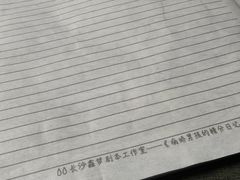 00长沙鑫梦剧本工作室——《病娇男孩的精分日记